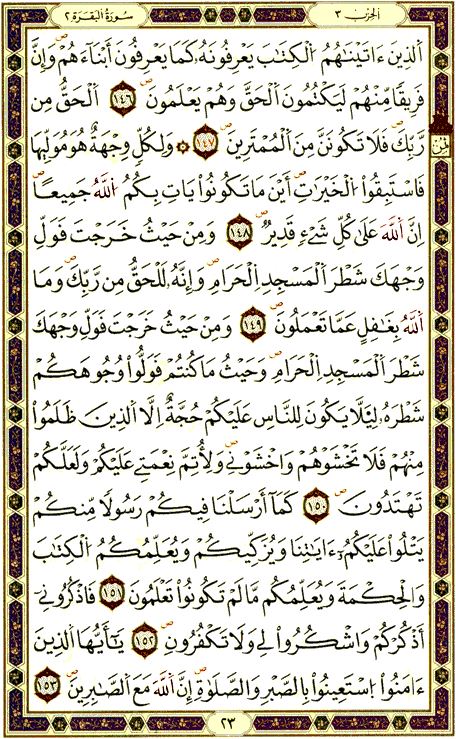 الحزب ٣
سورة البقرة ٢
اَلذِينَ ءَاتَيْنَٰهُمُ الْكِتَٰبَ يَعْرِفُونَهُۥ كَمَا يَعْرِفُونَ أَبْنَآءَهُمْ وَإِنَّ
فَرِيقاً مِّنْهُمْ لَيَكْتُمُونَ اَلْحَقَّ وَهُمْ يَعْلَمُونَ ١٤٦ اَلْحَقُّ مِن
رَّبِّكَ فَلَا تَكُونَنَّ مِنَ اَلْمُمْتَرِينَ ١٤٧ وَلِكُلٍّ وِجْهَةٌ هُوَ مُوَلِّيهَا
فَاسْتَبِقُوا۟ اُلْخَيْرَٰتِ أَيْنَ مَا تَكُونُوا۟ يَاتِ بِكُمُ اُللَّهُ جَمِيعاً
اِنَّ اَللَّهَ عَلَىٰ كُلِّ شَےْءٍ قَدِيرٌ ١٤٨ وَمِنْ حَيْثُ خَرَجْتَ فَوَلِّ
وَجْهَكَ شَطْرَ اَلْمَسْجِدِ اِلْحَرَامِ وَإِنَّهُۥ لَلْحَقُّ مِن رَّبِّكَ وَمَا
اَللَّهُ بِغَٰفِلٍ عَمَّا تَعْمَلُونَ ١٤٩ وَمِنْ حَيْثُ خَرَجْتَ فَوَلِّ وَجْهَكَ
شَطْرَ اَلْمَسْجِدِ اِلْحَرَامِ وَحَيْثُ مَا كُنتُمْ فَوَلُّوا۟ وُجُوهَكُمْ
شَطْرَهُۥ لِيَلَّا يَكُونَ لِلنَّاسِ عَلَيْكُمْ حُجَّةٌ اِلَّا اَلذِينَ ظَلَمُوا۟
مِنْهُمْ فَلَا تَخْشَوْهُمْ وَاخْشَوْنِے وَلِأُتِمَّ نِعْمَتِے عَلَيْكُمْ وَلَعَلَّكُمْ
تَهْتَدُونَ ١٥٠ كَمَآ أَرْسَلْنَا فِيكُمْ رَسُولاً مِّنكُمْ
يَتْلُوا۟ عَلَيْكُمُۥٓ ءَايَٰتِنَا وَيُزَكِّيكُمْ وَيُعَلِّمُكُمُ اُلْكِتَٰبَ
وَالْحِكْمَةَ وَيُعَلِّمُكُم مَّا لَمْ تَكُونُوا۟ تَعْلَمُونَ ١٥١ فَاذْكُرُونِےٓ
أَذْكُرْكُمْ وَاشْكُرُوا۟ لِے وَلَا تَكْفُرُونِ ١٥٢ يَٰٓأَيُّهَا اَلذِينَ
ءَامَنُوا۟ اُسْتَعِينُوا۟ بِالصَّبْرِ وَالصَّلَوٰةِ إِنَّ اَللَّهَ مَعَ اَلصَّٰبِرِينَ ١٥٣
ثمن
٢٣